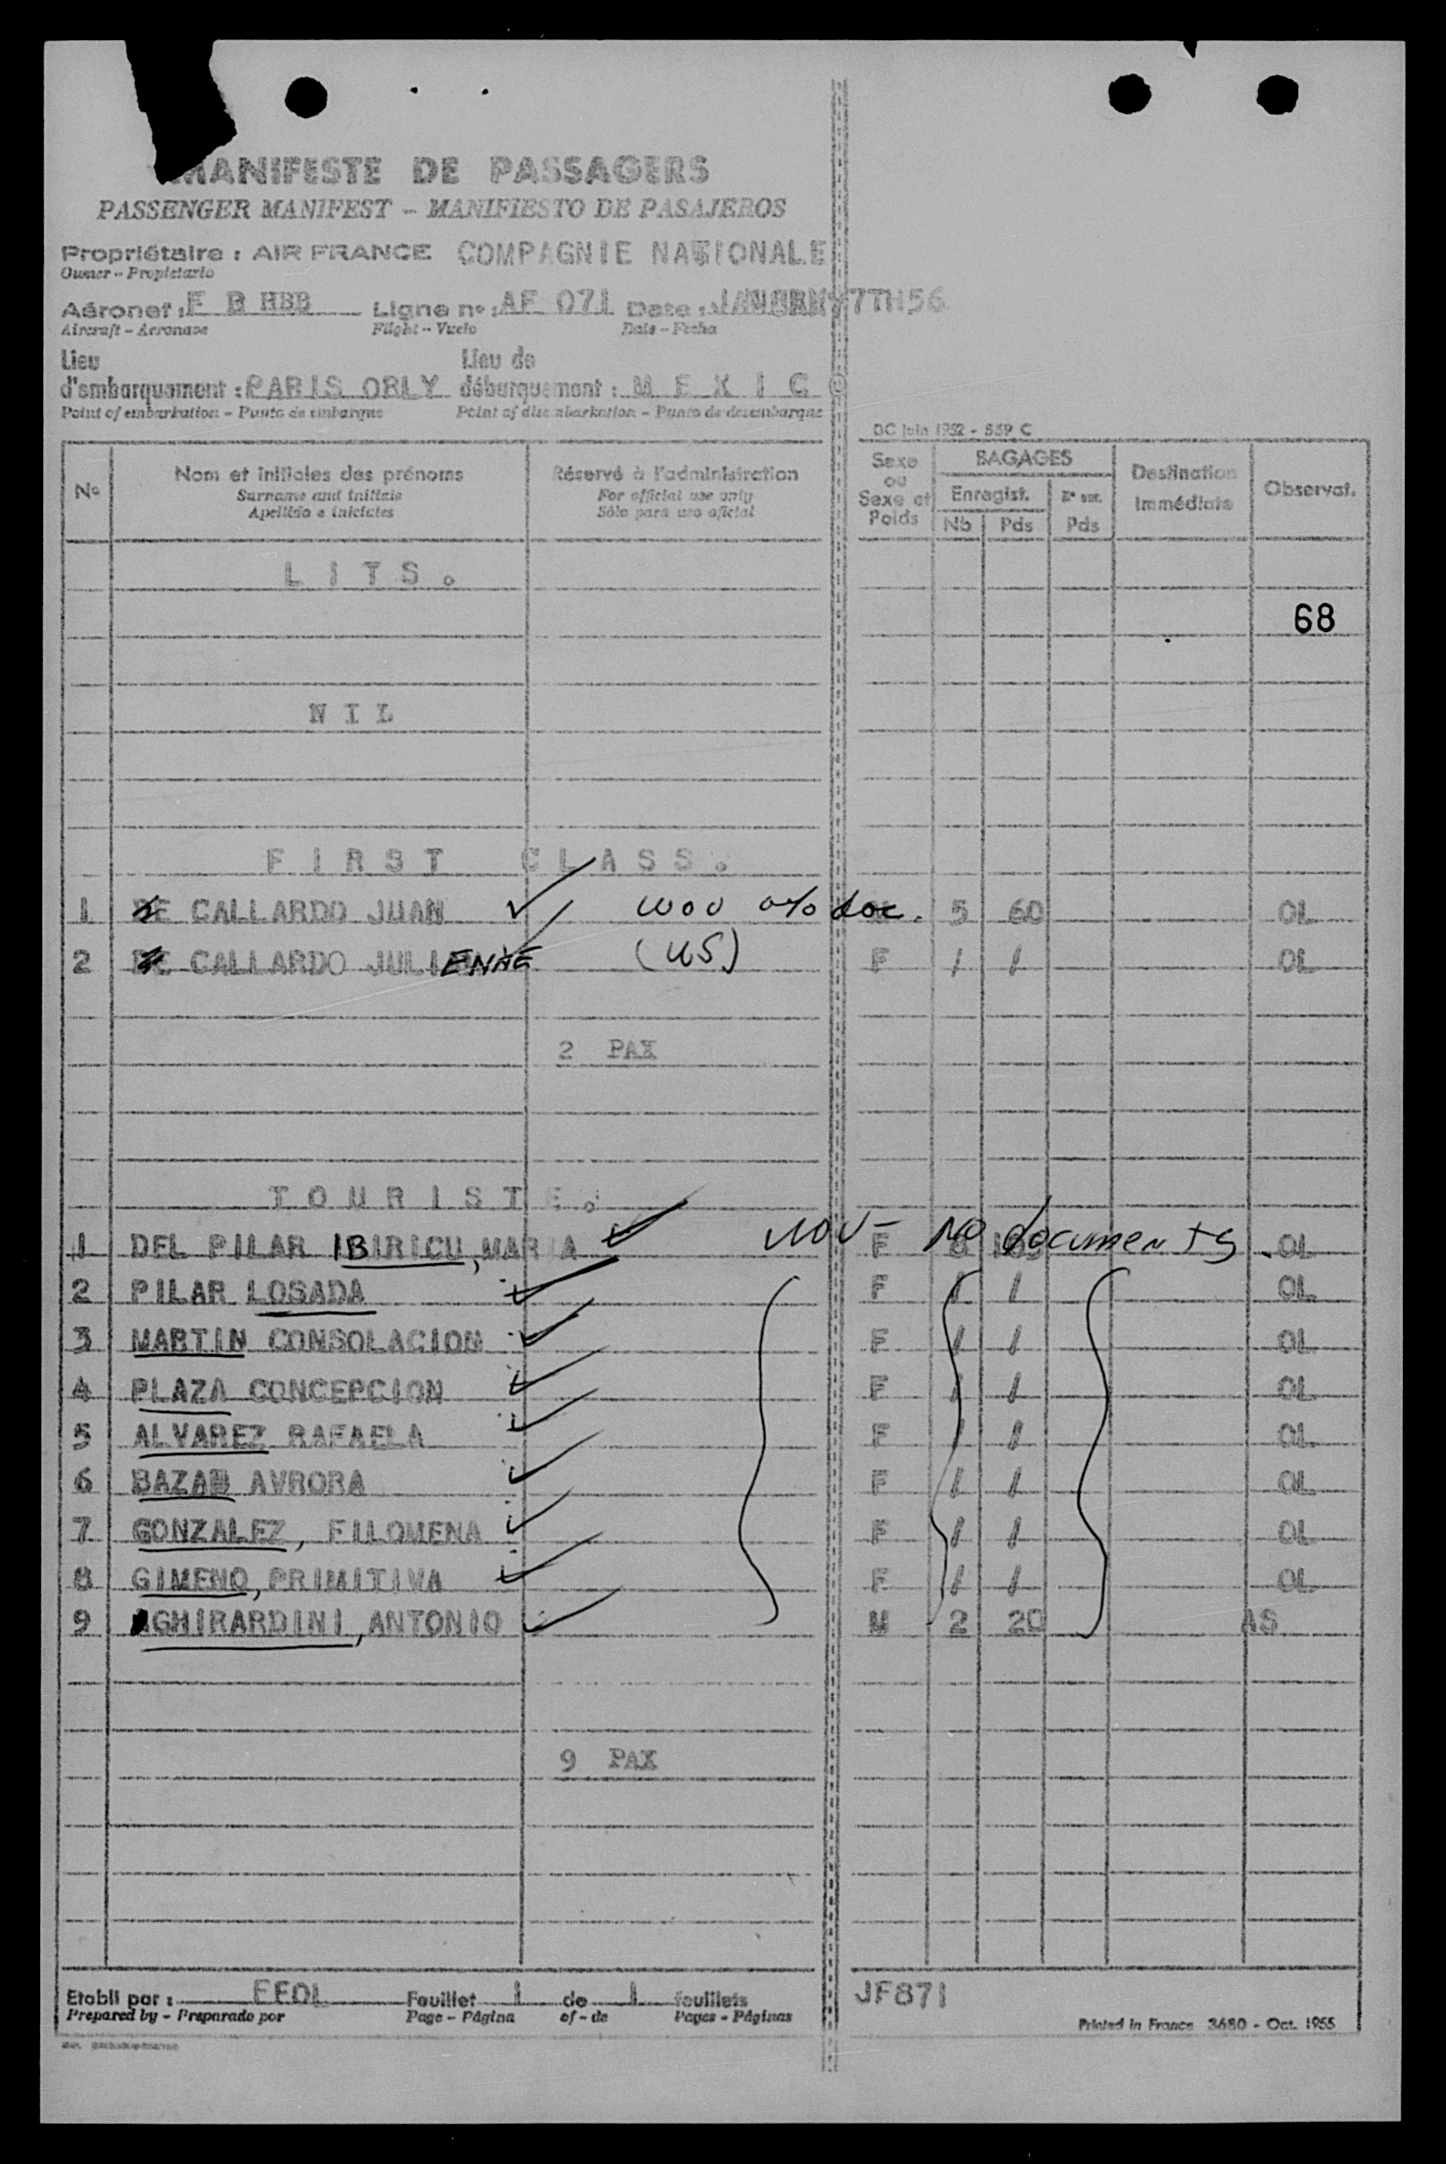 MANIFESTE DE PASSAGERS
PASSENGER MANIFEST - MANIFIESTO DE PASAJEROS
Propriétaire : AIR FRANCE COMPAGNIE NATIONALE
Owner - Propietario
Aéronef : F B HBB Ligne nº : AF 071 Date : JANUARY 7TH56
Aircraft - Aeronave Flight - Vuelo Date - Fecha
Lieu d'embarquement : PARIS ORLY Lieu de débarquement : M E X I C O
Point of embarkation - Punto de embarque Point of disembarkation - Punto de desembarque
DC Juin 1952 - 559 C
Nº Nom et initiales des prénoms Réservé à l'administration Sexe ou Sexe et Poids BAGAGES Destination Immédiate Observat.
Surname and initials For official use only Enregist.
Apellido e iniciales Sólo para uso oficial Nb Pds Pds
L I T S .
68
N I L
F I R S T C L A S S .
1 DE GALLARDO JUAN doc. 5 60 OL
2 DE GALLARDO JULIENNE (US) F / / OL
2 PAX
T O U R I S T E .
1 DEL PILAR IBIRICU, MARIA F No documents. OL
2 PILAR LOSADA F / / OL
3 MARTIN CONSOLACION F / / OL
4 PLAZA CONCEPCION F / / OL
5 ALVAREZ RAFAELA F / / OL
6 AVRORA F / / OL
7 GONZALEZ, FILOMENA F / / OL
8 GIMENO, PRIMITIVA F / / OL
9 GHIRARDINI, ANTONIO M 2 20 AS
9 PAX
Etabli par : EEOL Feuillet 1 de 1 feuillets JF871
Prepared by - Preparado por Page - Página of - de Pages - Páginas
Printed in France 3680 - Oct. 1955